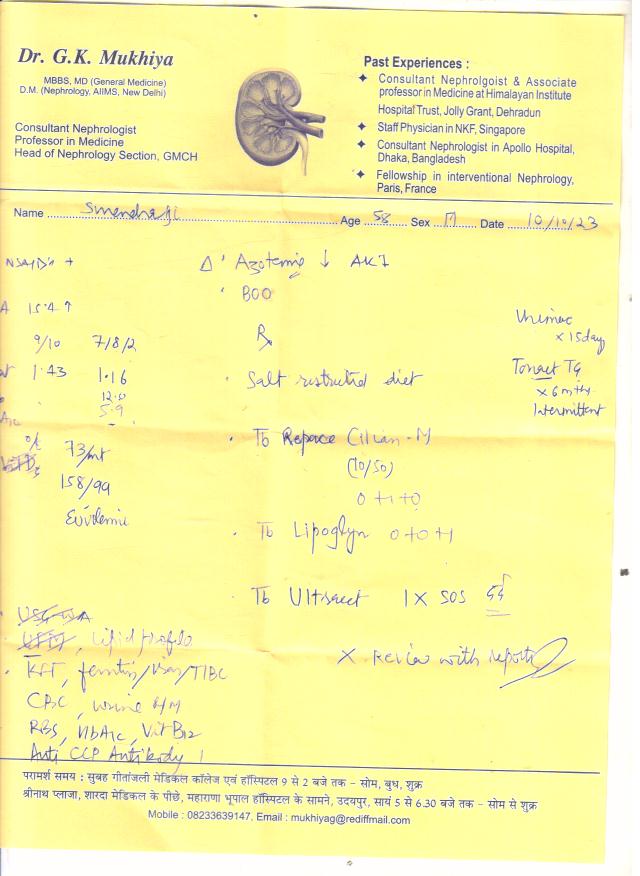 Dr. G.K. Mukhiya
MBBS, MD (General Medicine)
D.M. (Nephrology, AIIMS, New Delhi)
Consultant Nephrologist
Professor in Medicine
Head of Nephrology Section, GMCH
Past Experiences :
Consultant Nephrolgoist & Associate
professor in Medicine at Himalayan Institute
Hospital Trust, Jolly Grant, Dehradun
Staff Physician in NKF, Singapore
Consultant Nephrologist in Apollo Hospital,
Dhaka, Bangladesh
Fellowship in interventional Nephrology,
Paris, France
Name Age 58 Sex M Date 10/10/23
NSAIDs +
Δ Azotemia ↓ AKI
BOO
A 15.4 ↑
9/10 7/8/2
1.43 1.16
12.0
5.9
A1c
o/e 73/mt
158/99
Rx
Urimac
x 15 day
Tonact TG
x 6 mths
Intermittent
Salt restricted diet
Tb Cilnan-M
(10/50)
0+1+0
Tb Lipoglyn 0+0+1
Tb 1 X SOS
X Review with reports
USG
Lipid profile
KFT, ferritin/Iron/TIBC
CBC, urine R/M
RBS, HbA1c, Vit B12
Anti CCP Antibody
परामर्श समय : सुबह गीतांजली मेडिकल कॉलेज एवं हॉस्पिटल 9 से 2 बजे तक – सोम, बुध, शुक्र
श्रीनाथ प्लाजा, शारदा मेडिकल के पीछे, महाराणा भूपाल हॉस्पिटल के सामने, उदयपुर, सायं 5 से 6.30 बजे तक – सोम से शुक्र
Mobile : 08233639147, Email : mukhiyag@rediffmail.com